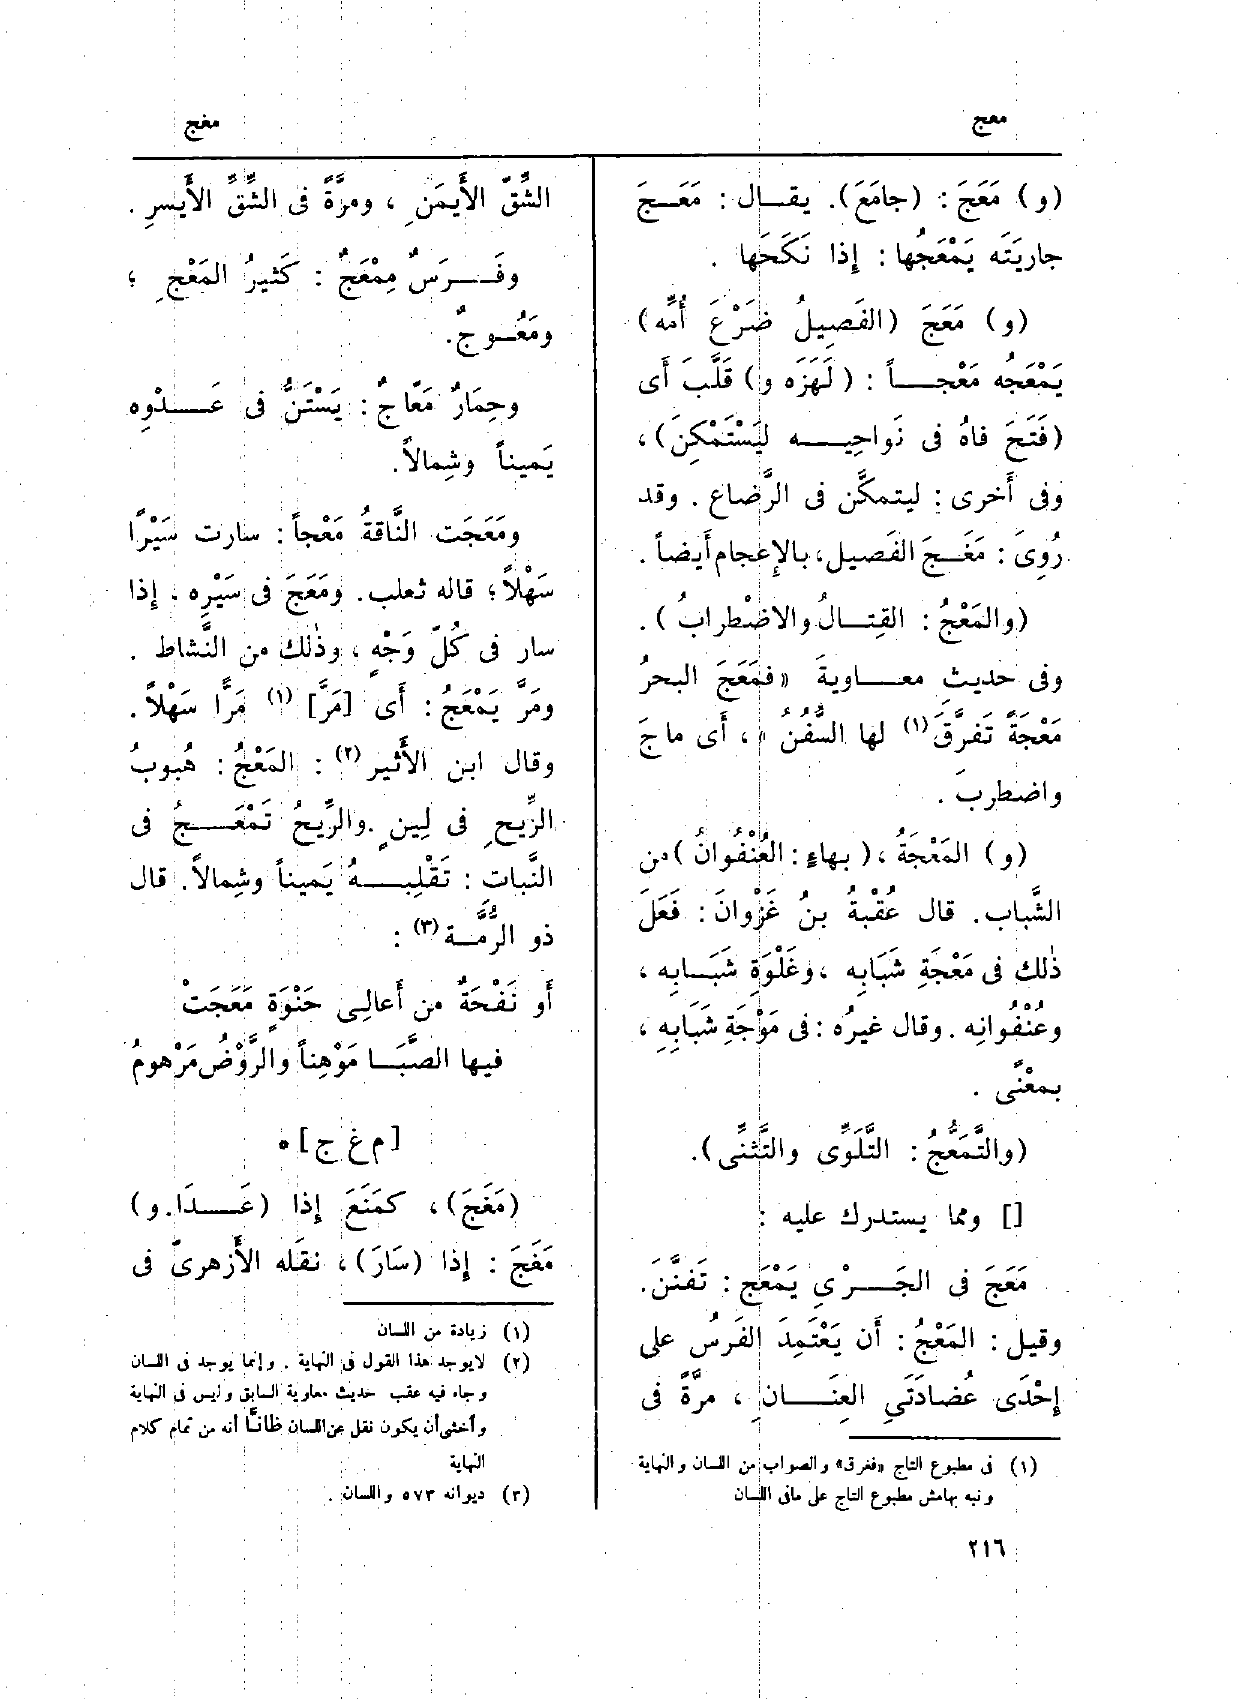 معج
مغج
(و) مَعَجَ : (جامَعَ). يقـال : مَعَـجَ
جاريَتَه يَمْعَجُها : إذا نَكَحَها .
(و) مَعَجَ (الفَصِيلُ ضَرْعَ أُمِّه)
يَمْعَجُه مَعْجـاً : (لَهَزَه و) قَلَّبَ أَى
(فَتَحَ فاهُ فى نَواحِيـه لِيَسْتَمْكِنَ)،
وفى أُخرى : ليتمكَّن فى الرَّضاع . وقد
رُوِىَ : مَغَـجَ الفَصيل، بالإِعجام أَيضاً .
(والمَعْجُ : القِتـالُ والاضْطرابُ ) .
وفى حديث معـاويةَ «فمَعَجَ البحرُ
مَعْجَةً تَفرَّقَ (١) لها السُّفُنُ» ، أَى ماجَ
واضطربَ .
(و) المَعْجَةُ ، (بهاءٍ : العُنْفُوانُ) من
الشَّباب. قال عُقْبةُ بنُ غَزْوانَ : فَعَلَ
ذٰلك فى مَعْجَةِ شَبَابِه ، وغَلْوَةِ شَبَـابِه ،
وعُنْفُوانِه . وقال غيرُه : فى مَوْجَةِ شَبَابِهِ ،
بمعْنًى .
(والتَّمَعُّجُ : التَّلَوِّى والتَّثَنِّى).
[] ومما يستدرك عليه :
مَعَجَ فى الجَـرْىِ يَمْعَج : تَفنَّنَ.
وقيل : المَعْجُ : أَن يَعْتَمِدَ الفَرسُ على
إِحْدَى عُضادَتَىِ العِنَـانِ ، مرَّةً فى
(١) فى مطبوع التاج «ففرق» والصواب من اللسان والنهاية
ونبه بهامش مطبوع التاج على مافى اللسان
٢١٦
الشِّقِّ الأَيمَنِ ، ومرَّةً فى الشِّقِّ الأَيسرِ .
وفَـرَسٌ مِمْعَجٌ : كَثيرُ المَعْجِ ؛
ومَعُـوجٌ.
وحِمَارٌ مَعّاجٌ : يَسْتَنُّ فى عَـدْوِه
يَميناً وشِمالاً.
ومَعَجَت النَّاقةُ مَعْجاً : سارت سَيْرًا
سَهْلاً؛ قاله ثعلب. ومَعَجَ فى سَيْرِه . إذا
سار فى كُلّ وَجْهٍ ، وذٰلك من النَّشاط .
ومَرَّ يَمْعَجُ : أَى [مَرَّ] (١) مَرًّا سَهْلاً.
وقال ابن الأَثير (٢) : المَعْجُ : هُبوبُ
الرِّيحِ فى لِينٍ . والرِّيحُ تَمْعَـجُ فى
النَّبات : تَقْلِبـهُ يَميناً وشِمالاً. قال
ذو الرُّمَّـة (٣) :
أَو نَفْحَةٌ من أَعالِى حَنْوَةٍ مَعَجَتْ
فيها الصَّبَـا مَوْهِناً والرَّوْضُ مَرْهومُ
[م غ ج] *
(مَغَجَ)، كمَنَعَ إذا (عَـدَا. و)
مَغَجَ : إذا (سَارَ)، نقَله الأَزهرىّ فى
(١) زيادة من اللسان
(٢) لا يوجد هذا القول فى النهاية . وإنما يوجد فى اللسان
وجاء فيه عقب حديث معاوية السابق وليس فى النهاية
وأخشى أن يكون نقل عن اللسان ظانًّا أنه من تمام كلام
النهاية
(٣) ديوانه ٥٧٣ واللسان .